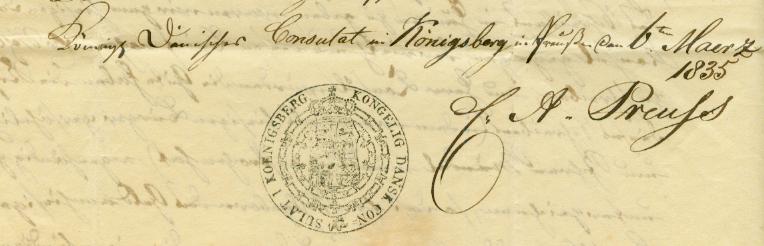 Königl Dänisches Consulat in Königsberg in Preußen den 6ten Maerz
1835
C. A. Preuss
KONGELIG DANSK CONSULAT I KOENIGSBERG